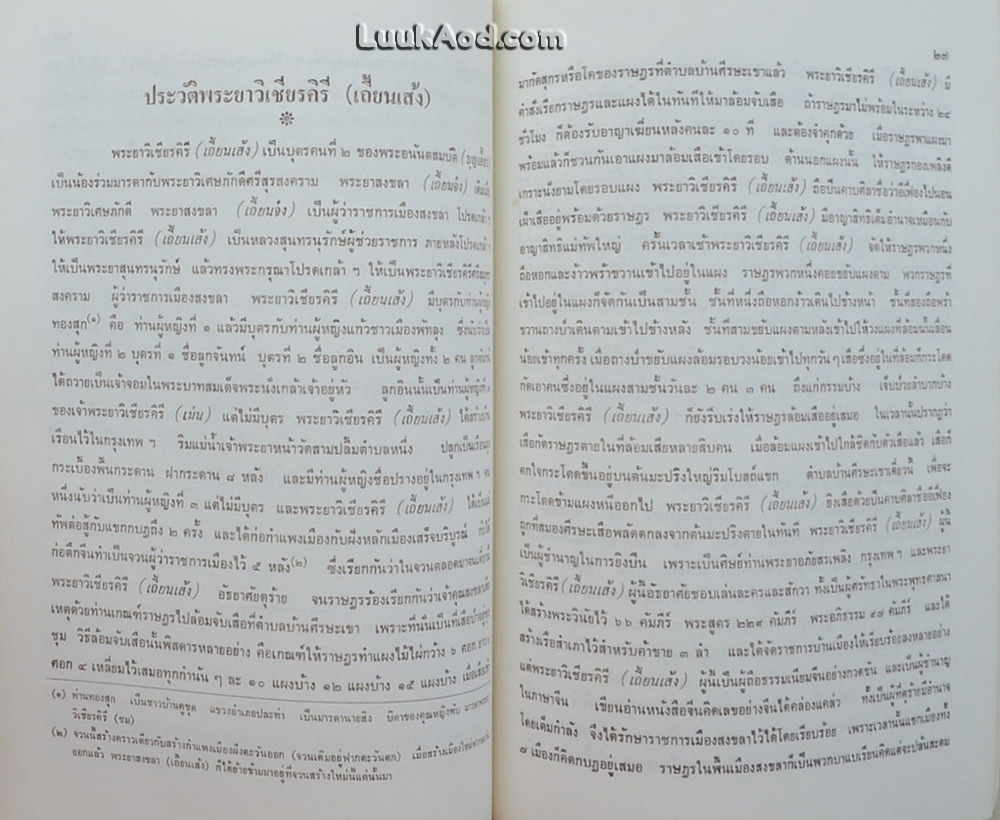 LuukAod.com
ประวัติพระยาวิเชียรคิรี (เถี้ยนเส้ง)
พระยาวิเชียรคิรี (เถี้ยนเส้ง) เป็นบุตรคนที่ ๒ ของพระอนันตสมบัติ
เป็นน้องร่วมมารดากับพระยาวิเศษภักดีศรีสุรสงคราม พระยาสงขลา (เถี้ยนจ๋ง)
พระยาวิเศษภักดี พระยาสงขลา (เถี้ยนจ๋ง) เป็นผู้ว่าราชการเมืองสงขลา โปรดเกล้า ฯ
ให้พระยาวิเชียรคิรี (เถี้ยนเส้ง) เป็นหลวงสุนทรนุรักษ์ผู้ช่วยราชการ ภายหลังโปรดเกล้า ฯ
ให้เป็นพระยาสุนทรนุรักษ์ แล้วทรงพระกรุณาโปรดเกล้า ฯ ให้เป็นพระยาวิเชียรคิรี
สงคราม ผู้ว่าราชการเมืองสงขลา พระยาวิเชียรคิรี (เถี้ยนเส้ง) มีบุตรกับท่านผู้หญิง
ทองสุก(๑) คือ ท่านผู้หญิงที่ ๑ แล้วมีบุตรกับท่านผู้หญิงแก้วชาวเมืองพัทลุง ซึ่งนับว่าเป็น
ท่านผู้หญิงที่ ๒ บุตรที่ ๑ ชื่อลูกจันทน์ บุตรที่ ๒ ชื่อลูกอิน เป็นผู้หญิงทั้ง ๒ คน
ได้ถวายเป็นเจ้าจอมในพระบาทสมเด็จพระนั่งเกล้าเจ้าอยู่หัว ลูกอินนั้นเป็นท่านผู้หญิงที่ ๑
ของเจ้าพระยาวิเชียรคิรี (เม่น) แต่ไม่มีบุตร พระยาวิเชียรคิรี (เถี้ยนเส้ง) ได้สร้างบ้าน
เรือนไว้ในกรุงเทพ ฯ ริมแม่น้ำเจ้าพระยาหน้าวัดสามปลื้มตำบลหนึ่ง ปลูกเป็นเรือนมุง
กระเบื้องพื้นกระดาน ฝากระดาน ๘ หลัง และมีท่านผู้หญิงชื่อปรางอยู่ในกรุงเทพ ฯ คน
หนึ่งนับว่าเป็นท่านผู้หญิงที่ ๓ แต่ไม่มีบุตร และพระยาวิเชียรคิรี (เถี้ยนเส้ง) ได้เป็นแม่
ทัพต่อสู้กับแขกกบฏถึง ๒ ครั้ง และได้ก่อกำแพงเมืองกับฝังหลักเมืองเสร็จบริบูรณ์
ก่อตึกจีนทำเป็นจวนผู้ว่าราชการเมืองไว้ ๕ หลัง(๒) ซึ่งเรียกกันว่าในจวนตลอดมาจน
พระยาวิเชียรคิรี (เถี้ยนเส้ง) อัธยาศัยดุร้าย จนราษฎรร้องเรียกกันว่าเจ้าคุณสงขลาเสือ
เหตุด้วยท่านเกณฑ์ราษฎรไปล้อมจับเสือที่ตำบลบ้านศีรษะเขา เพราะที่นั้นเป็นที่เสือป่าอยู่
ชุม วิธีล้อมจับเสือนั้นพิสดารหลายอย่าง คือเกณฑ์ให้ราษฎรทำแผงไม้ไผ่กว้าง ๖ ศอก
ศอก ๔ เหลี่ยมไว้เสมอทุกกำนัน ๆ ละ ๑๐ แผงบ้าง ๑๒ แผงบ้าง ๑๕ แผงบ้าง
(๑) ท่านทองสุก เป็นชาวบ้านคูขุด แขวงอำเภอปละท่า เป็นมารดานายสิง บิดาของคุณหญิงพับ
วิเชียรคิรี (ชม)
(๒) จวนนี้สร้างคราวเดียวกับสร้างกำแพงเมืองฝั่งตะวันออก (จวนเดิมอยู่ฟากตะวันตก) เมื่อสร้างเมืองใหม่
ออกแล้ว พระยาสงขลา (เถี้ยนเส้ง) ก็ได้ย้ายข้ามมาอยู่ที่จวนสร้างใหม่นั้นแต่นั้นมา
๒๗
มากัดสุกรหรือโคของราษฎรที่ตำบลบ้านศีรษะเขาแล้ว พระยาวิเชียรคิรี (เถี้ยนเส้ง) มี
คำสั่งเรียกราษฎรและแผงได้ในทันทีให้มาล้อมจับเสือ ถ้าราษฎรมาไม่พร้อมในระหว่าง ๒๔
ชั่วโมง ก็ต้องรับอาญาเฆี่ยนหลังคนละ ๑๐ ที และต้องจำคุกด้วย เมื่อราษฎรพาแผงมา
พร้อมแล้วก็ชวนกันเอาแผงมาล้อมเสือเข้าโดยรอบ ด้านนอกแผงนั้น ให้ราษฎรกองเพลิงตี
เกราะนั่งยามโดยรอบแผง พระยาวิเชียรคิรี (เถี้ยนเส้ง) ถือปืนคาบศิลาชื่อว่าอีเฟืองไปนอน
เฝ้าเสืออยู่พร้อมด้วยราษฎร พระยาวิเชียรคิรี (เถี้ยนเส้ง) มีอาญาสิทธิเด็ดอำนาจเหมือนกับ
อาญาสิทธิแม่ทัพใหญ่ ครั้นเวลาเช้าพระยาวิเชียรคิรี (เถี้ยนเส้ง) จัดให้ราษฎรพวกหนึ่ง
ถือหอกและง้าวพร้าขวานเข้าไปอยู่ในแผง ราษฎรพวกหนึ่งคอยขยับแผงตาม พวกราษฎรที่
เข้าไปอยู่ในแผงก็จัดกันเป็นสามชั้น ชั้นที่หนึ่งถือหอกง้าวเดินไปข้างหน้า ชั้นที่สองถือพร้า
ขวานถางป่าเดินตามเข้าไปข้างหลัง ชั้นที่สามขยับแผงตามหลังเข้าไปให้วงแผงที่ล้อมนั้นเลื่อน
น้อยเข้าทุกครั้ง เมื่อถางป่าขยับแผงล้อมรอบวงน้อยเข้าไปทุกวัน ๆ เสือซึ่งอยู่ในที่ล้อมก็กระโดด
กัดเอาคนซึ่งอยู่ในแผงสามชั้นวันละ ๒ คน ๓ คน ถึงแก่กรรมบ้าง เจ็บป่วยลำบากบ้าง
พระยาวิเชียรคิรี (เถี้ยนเส้ง) ก็ยิ่งรีบเร่งให้ราษฎรล้อมเสืออยู่เสมอ ในเวลานั้นปรากฏว่า
เสือกัดราษฎรตายในที่ล้อมเสียหลายสิบคน เมื่อล้อมแผงเข้าไปใกล้ชิดกับตัวเสือแล้ว เสือก็
ตกใจกระโดดขึ้นอยู่บนต้นมะปริงใหญ่ริมโบสถ์แขก ตำบลบ้านศีรษะเขาเดี๋ยวนี้ เพื่อจะ
กระโดดข้ามแผงหนีออกไป พระยาวิเชียรคิรี (เถี้ยนเส้ง) ยิงเสือด้วยปืนคาบศิลาชื่ออีเฟือง
ถูกที่สมองศีรษะเสือพลัดตกลงจากต้นมะปริงตายในทันที พระยาวิเชียรคิรี (เถี้ยนเส้ง) ผู้นี้
เป็นผู้ชำนาญในการยิงปืน เพราะเป็นศิษย์ท่านพระยาอภัยสรเพลิง กรุงเทพ ฯ และพระยา
วิเชียรคิรี (เถี้ยนเส้ง) ผู้นี้อัธยาศัยชอบเล่นละครและสักวา ทั้งเป็นผู้ศรัทธาในพระพุทธศาสนา
ได้สร้างพระวินัยไว้ ๖๖ คัมภีร์ พระสูตร ๒๒๙ คัมภีร์ พระอภิธรรม ๙๘ คัมภีร์ และได้
สร้างเรือสำเภาไว้สำหรับค้าขาย ๓ ลำ และได้จัดราชการบ้านเมืองให้เรียบร้อยลงหลายอย่าง
แต่พระยาวิเชียรคิรี (เถี้ยนเส้ง) ผู้นี้เป็นผู้ถือธรรมเนียมจีนอย่างกวดขัน และเป็นผู้ชำนาญ
ในภาษาจีน เขียนอ่านหนังสือจีนคิดเลขอย่างจีนได้คล่องแคล่ว ทั้งเป็นผู้ที่ดุร้ายมีอำนาจ
โดยเต็มกำลัง จึงได้รักษาราชการเมืองสงขลาไว้ได้โดยเรียบร้อย เพราะเวลานั้นแขกเมืองทั้ง
๗ เมืองก็คิดกบฏอยู่เสมอ ราษฎรในพื้นเมืองสงขลาก็เป็นพวกบาแบเรียนคิดแต่จะปล้นสะดม